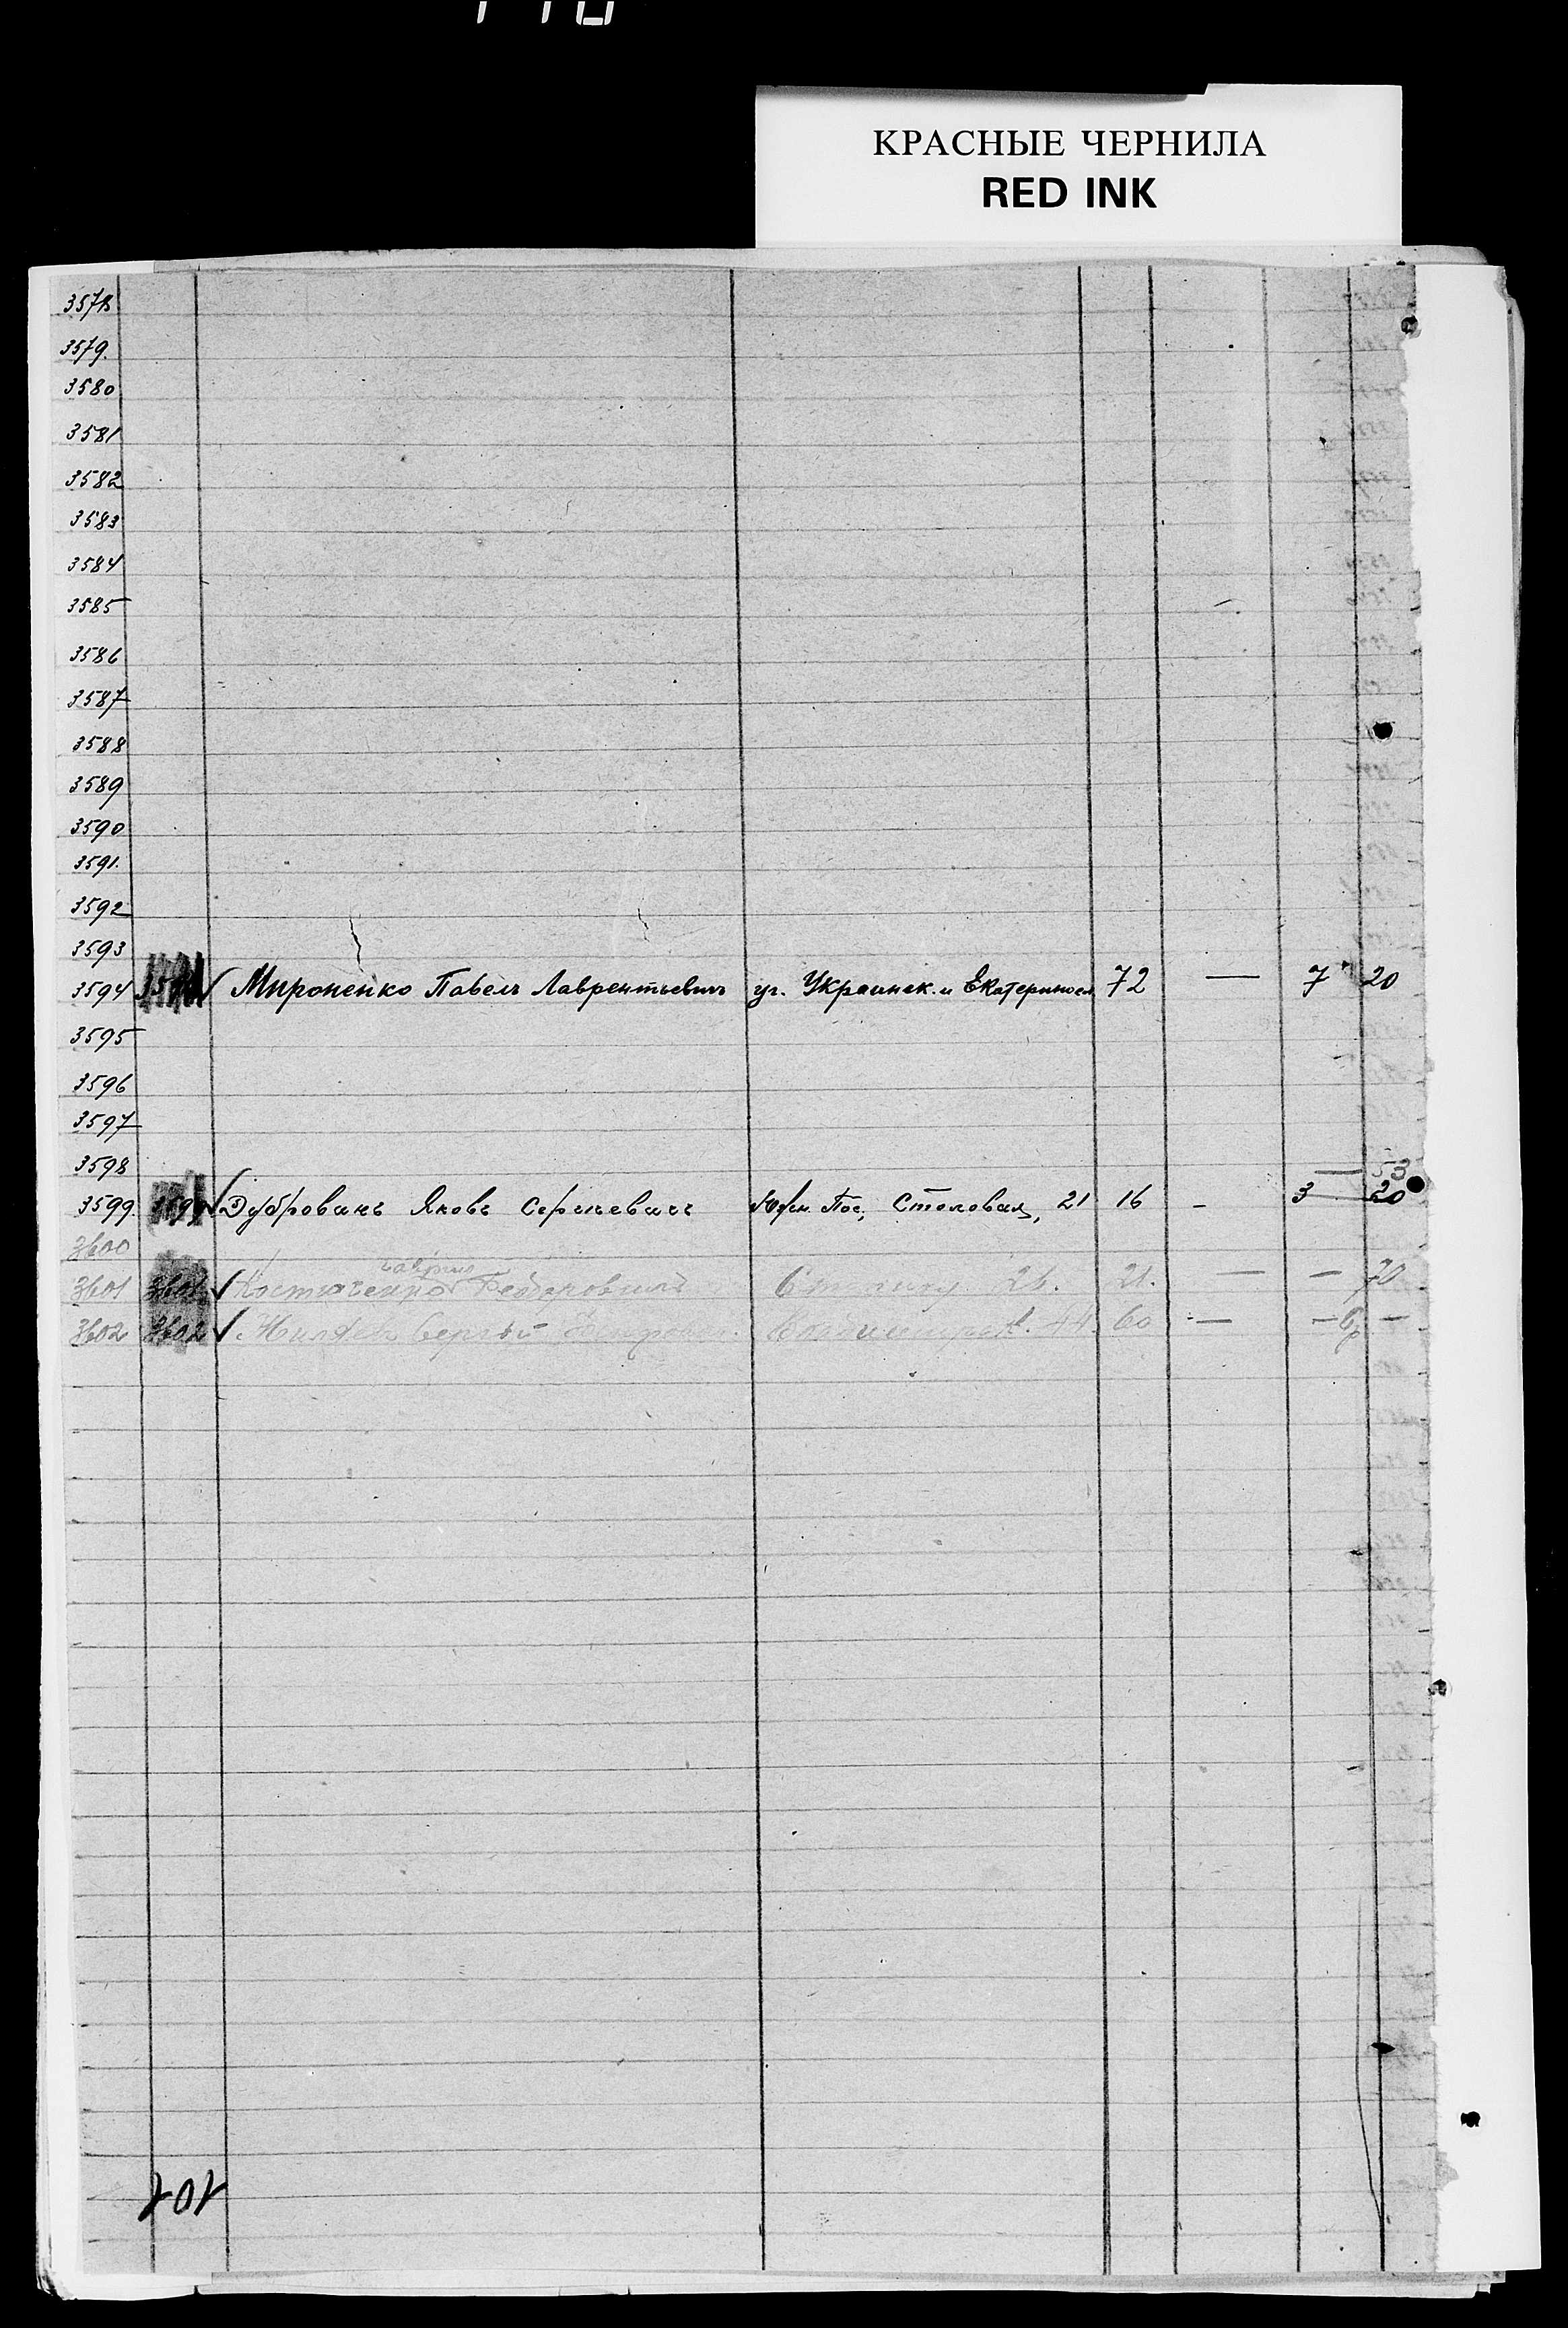 КРАСНЫЕ ЧЕРНИЛА
RED INK
3578
3579.
3580
3581
3582
3583
3584
3585
3586
3587
3588
3589
3590
3591.
3592
3593
3594 ✓ Мироненко Павелъ Лаврентьевичъ уг. Украинск. и Екатериносл. 72 — 7 20
3595
3596
3597
3598
— 53
3599. ✓ Дубровинъ Яковъ Сергѣевичъ Южн. Пос., Столовая, 21 16 - 3 20
3600
3601 3601 ✓ Костюченко Федоровичъ 26. 21. — — 70
3602 3602 ✓ Сергѣй 44. 60 — — 6 —